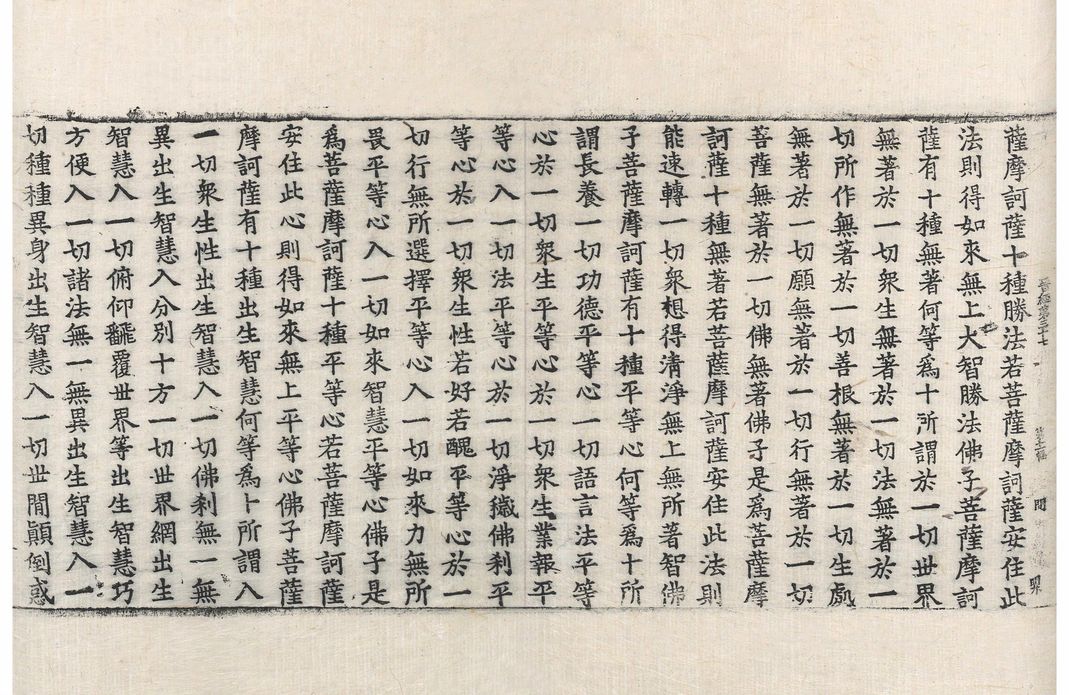 晉經第三十七　第十二幅
薩摩訶薩十種勝法若菩薩摩訶薩安住此
法則得如來無上大智勝法佛子菩薩摩訶
薩有十種無著何等爲十所謂於一切世界
無著於一切衆生無著於一切法無著於一
切所作無著於一切善根無著於一切生處
無著於一切願無著於一切行無著於一切
菩薩無著於一切佛無著佛子是爲菩薩摩
訶薩十種無著若菩薩摩訶薩安住此法則
能速轉一切衆想得淸淨無上無所著智佛
子菩薩摩訶薩有十種平等心何等爲十所
謂長養一切功德平等心一切語言法平等
心於一切衆生平等心於一切衆生業報平
等心入一切法平等心於一切淨穢佛刹平
等心於一切衆生性若好若醜平等心於一
切行無所選擇平等心入一切如來力無所
畏平等心入一切如來智慧平等心佛子是
爲菩薩摩訶薩十種平等心若菩薩摩訶薩
安住此心則得如來無上平等心佛子菩薩
摩訶薩有十種出生智慧何等爲十所謂入
一切衆生性出生智慧入一切佛刹無一無
異出生智慧入分別十方一切世界網出生
智慧入一切俯仰飜覆世界等出生智慧巧
方便入一切諸法無一無異出生智慧入一
切種種異身出生智慧入一切世間顚倒惑